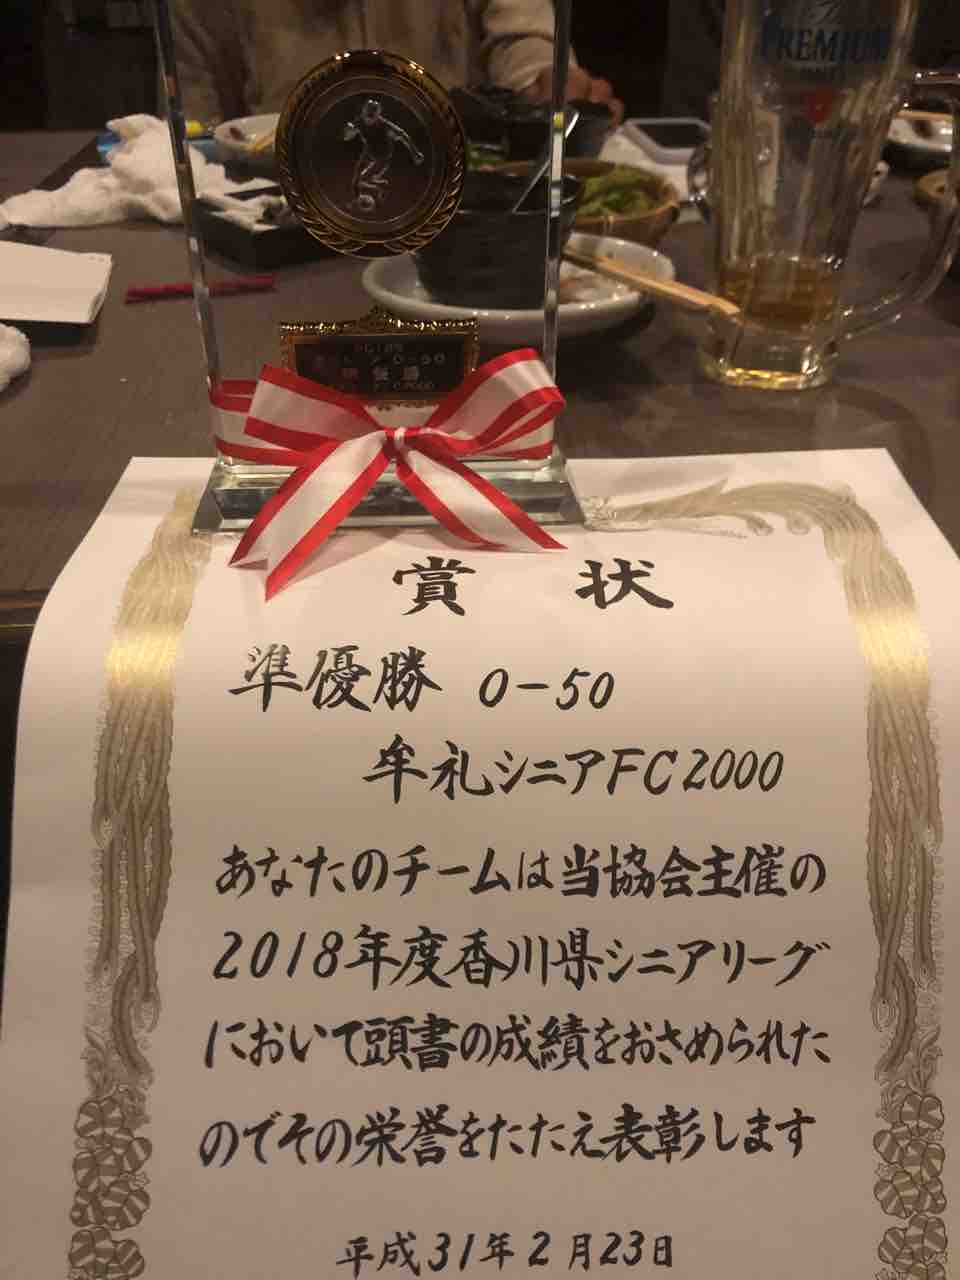 PREMIUM
O-50
準優勝
FC2000
賞状
準優勝 O-50
牟礼シニアFC2000
あなたのチームは当協会主催の
2018年度香川県シニアリーグ
において頭書の成績をおさめられた
のでその栄誉をたたえ表彰します
平成31年2月23日